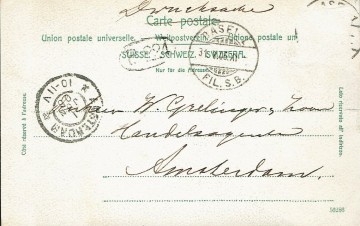 Drucksache
Carte postale.
Union postale universelle. Weltpostverein. Unione postale un
SUISSE. SCHWEIZ. SVIZZERA.
Nur für die Adresse.
BASEL
FIL. S.B.
AMSTERDAM
10-11V
Côté réservé à l'adresse.
Lato riservato all'indirizzo.
Herrn W. Grelinger, Zoon
Handelsagenten
Amsterdam.